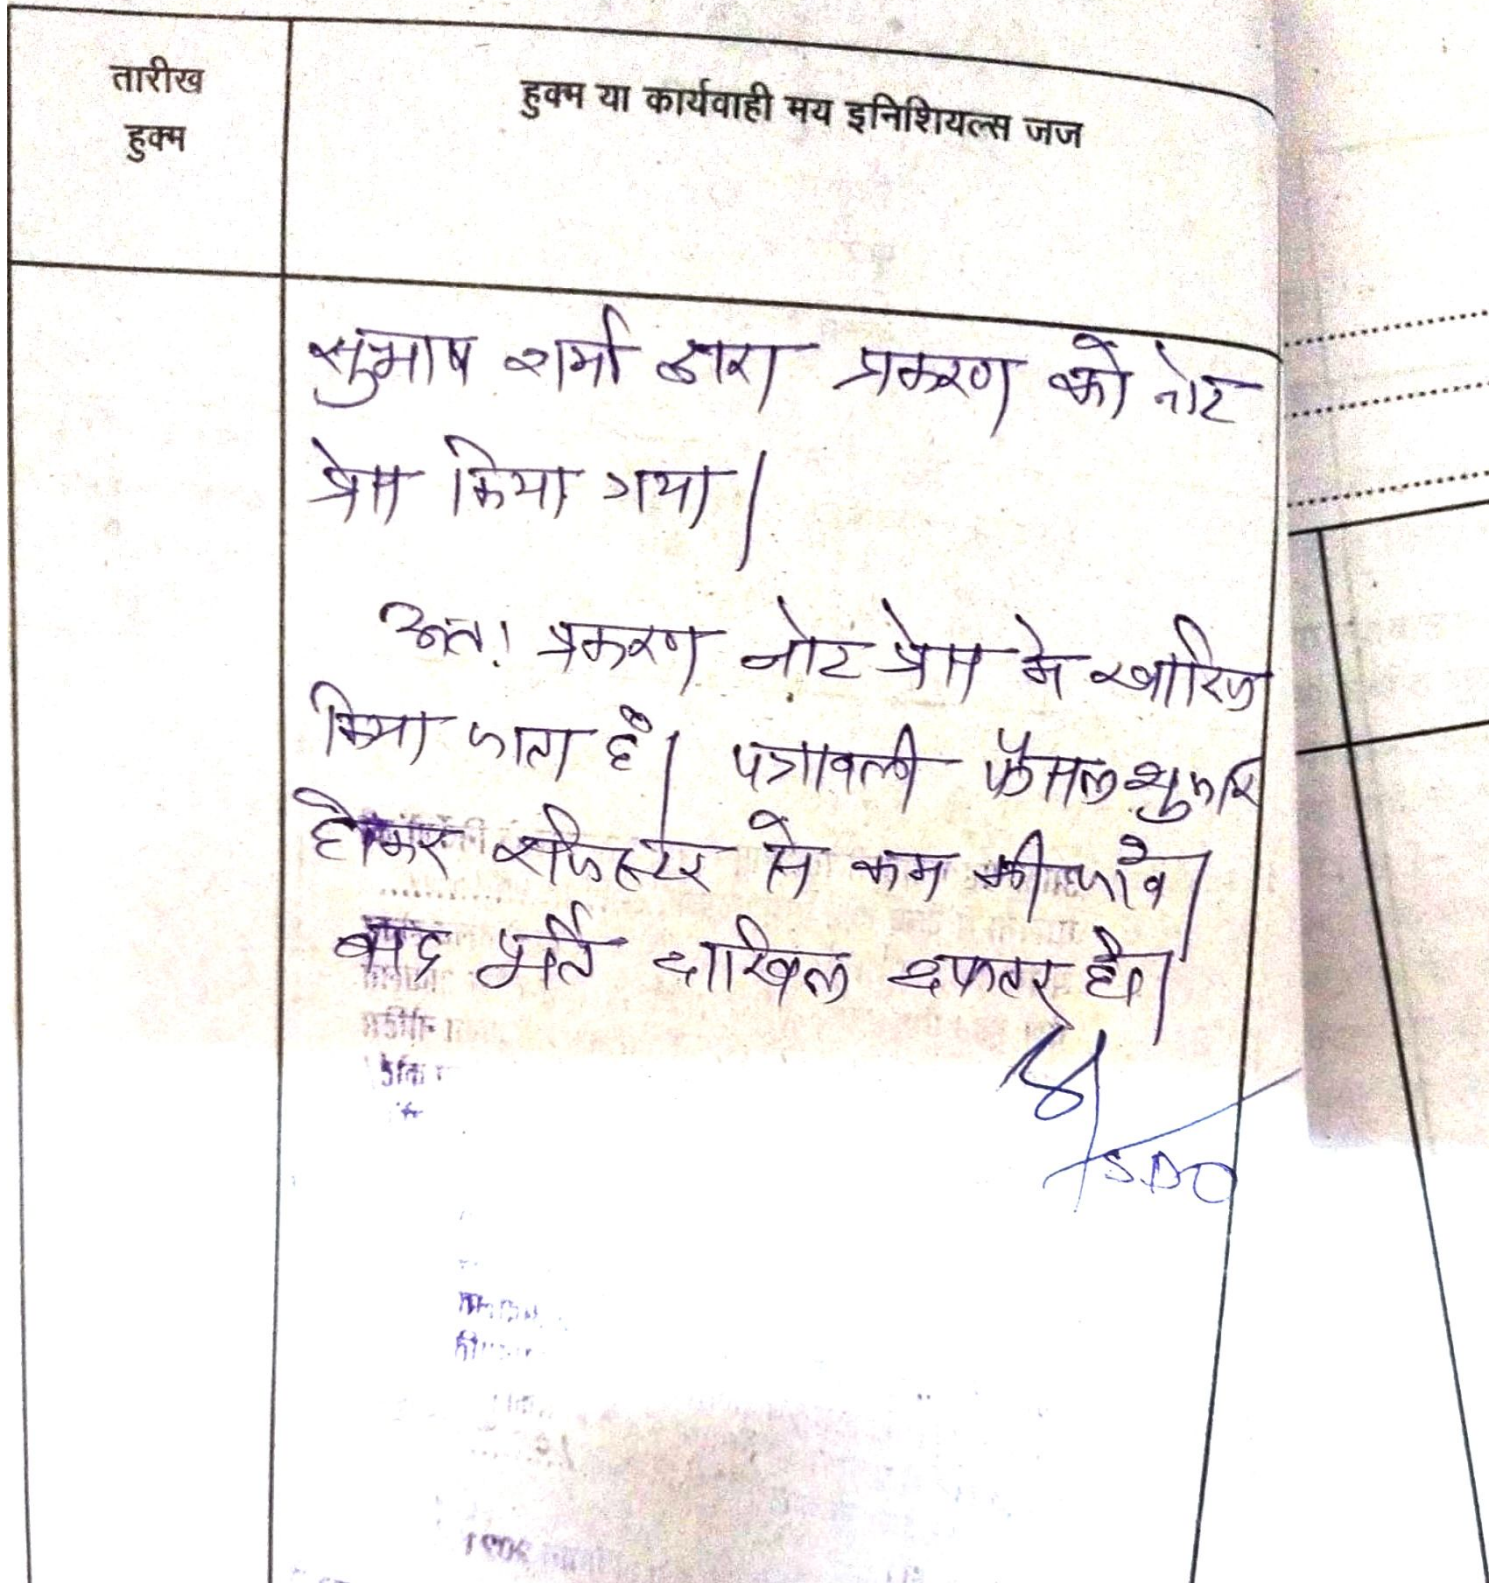 तारीख
हुक्म
हुक्म या कार्यवाही मय इनिशियल्स जज
सुभाष शर्मा द्वारा प्रकरण को नोट
प्रेस किया गया।
अत! प्रकरण नोट प्रेस मे खारिज
किया जाता है। पत्रावली फैसल शुमार
होकर रजिस्टर से कम की जावे।
बाद पूर्ति दाखिल दफ्तर हो।
SDO